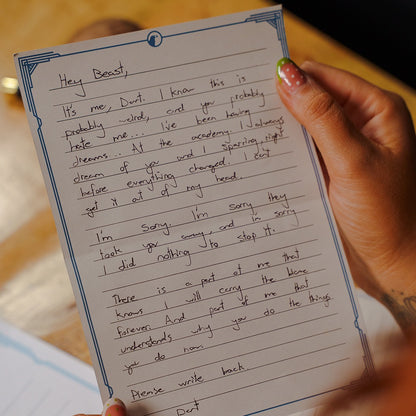 Hey Beast,
It's me, Dart. I know this is
probably weird, and you probably
hate me... I've been having
dreams... At the academy. I always
dream of you and I sparring, right
before everything changed. I can't
get it out of my head.
I'm sorry. I'm sorry they
took you away, and I'm sorry
I did nothing to stop it.
There is a part of me that
knows I will carry the blame
forever. And part of me that
understands why you do the things
you do now.
Please write back
Dart